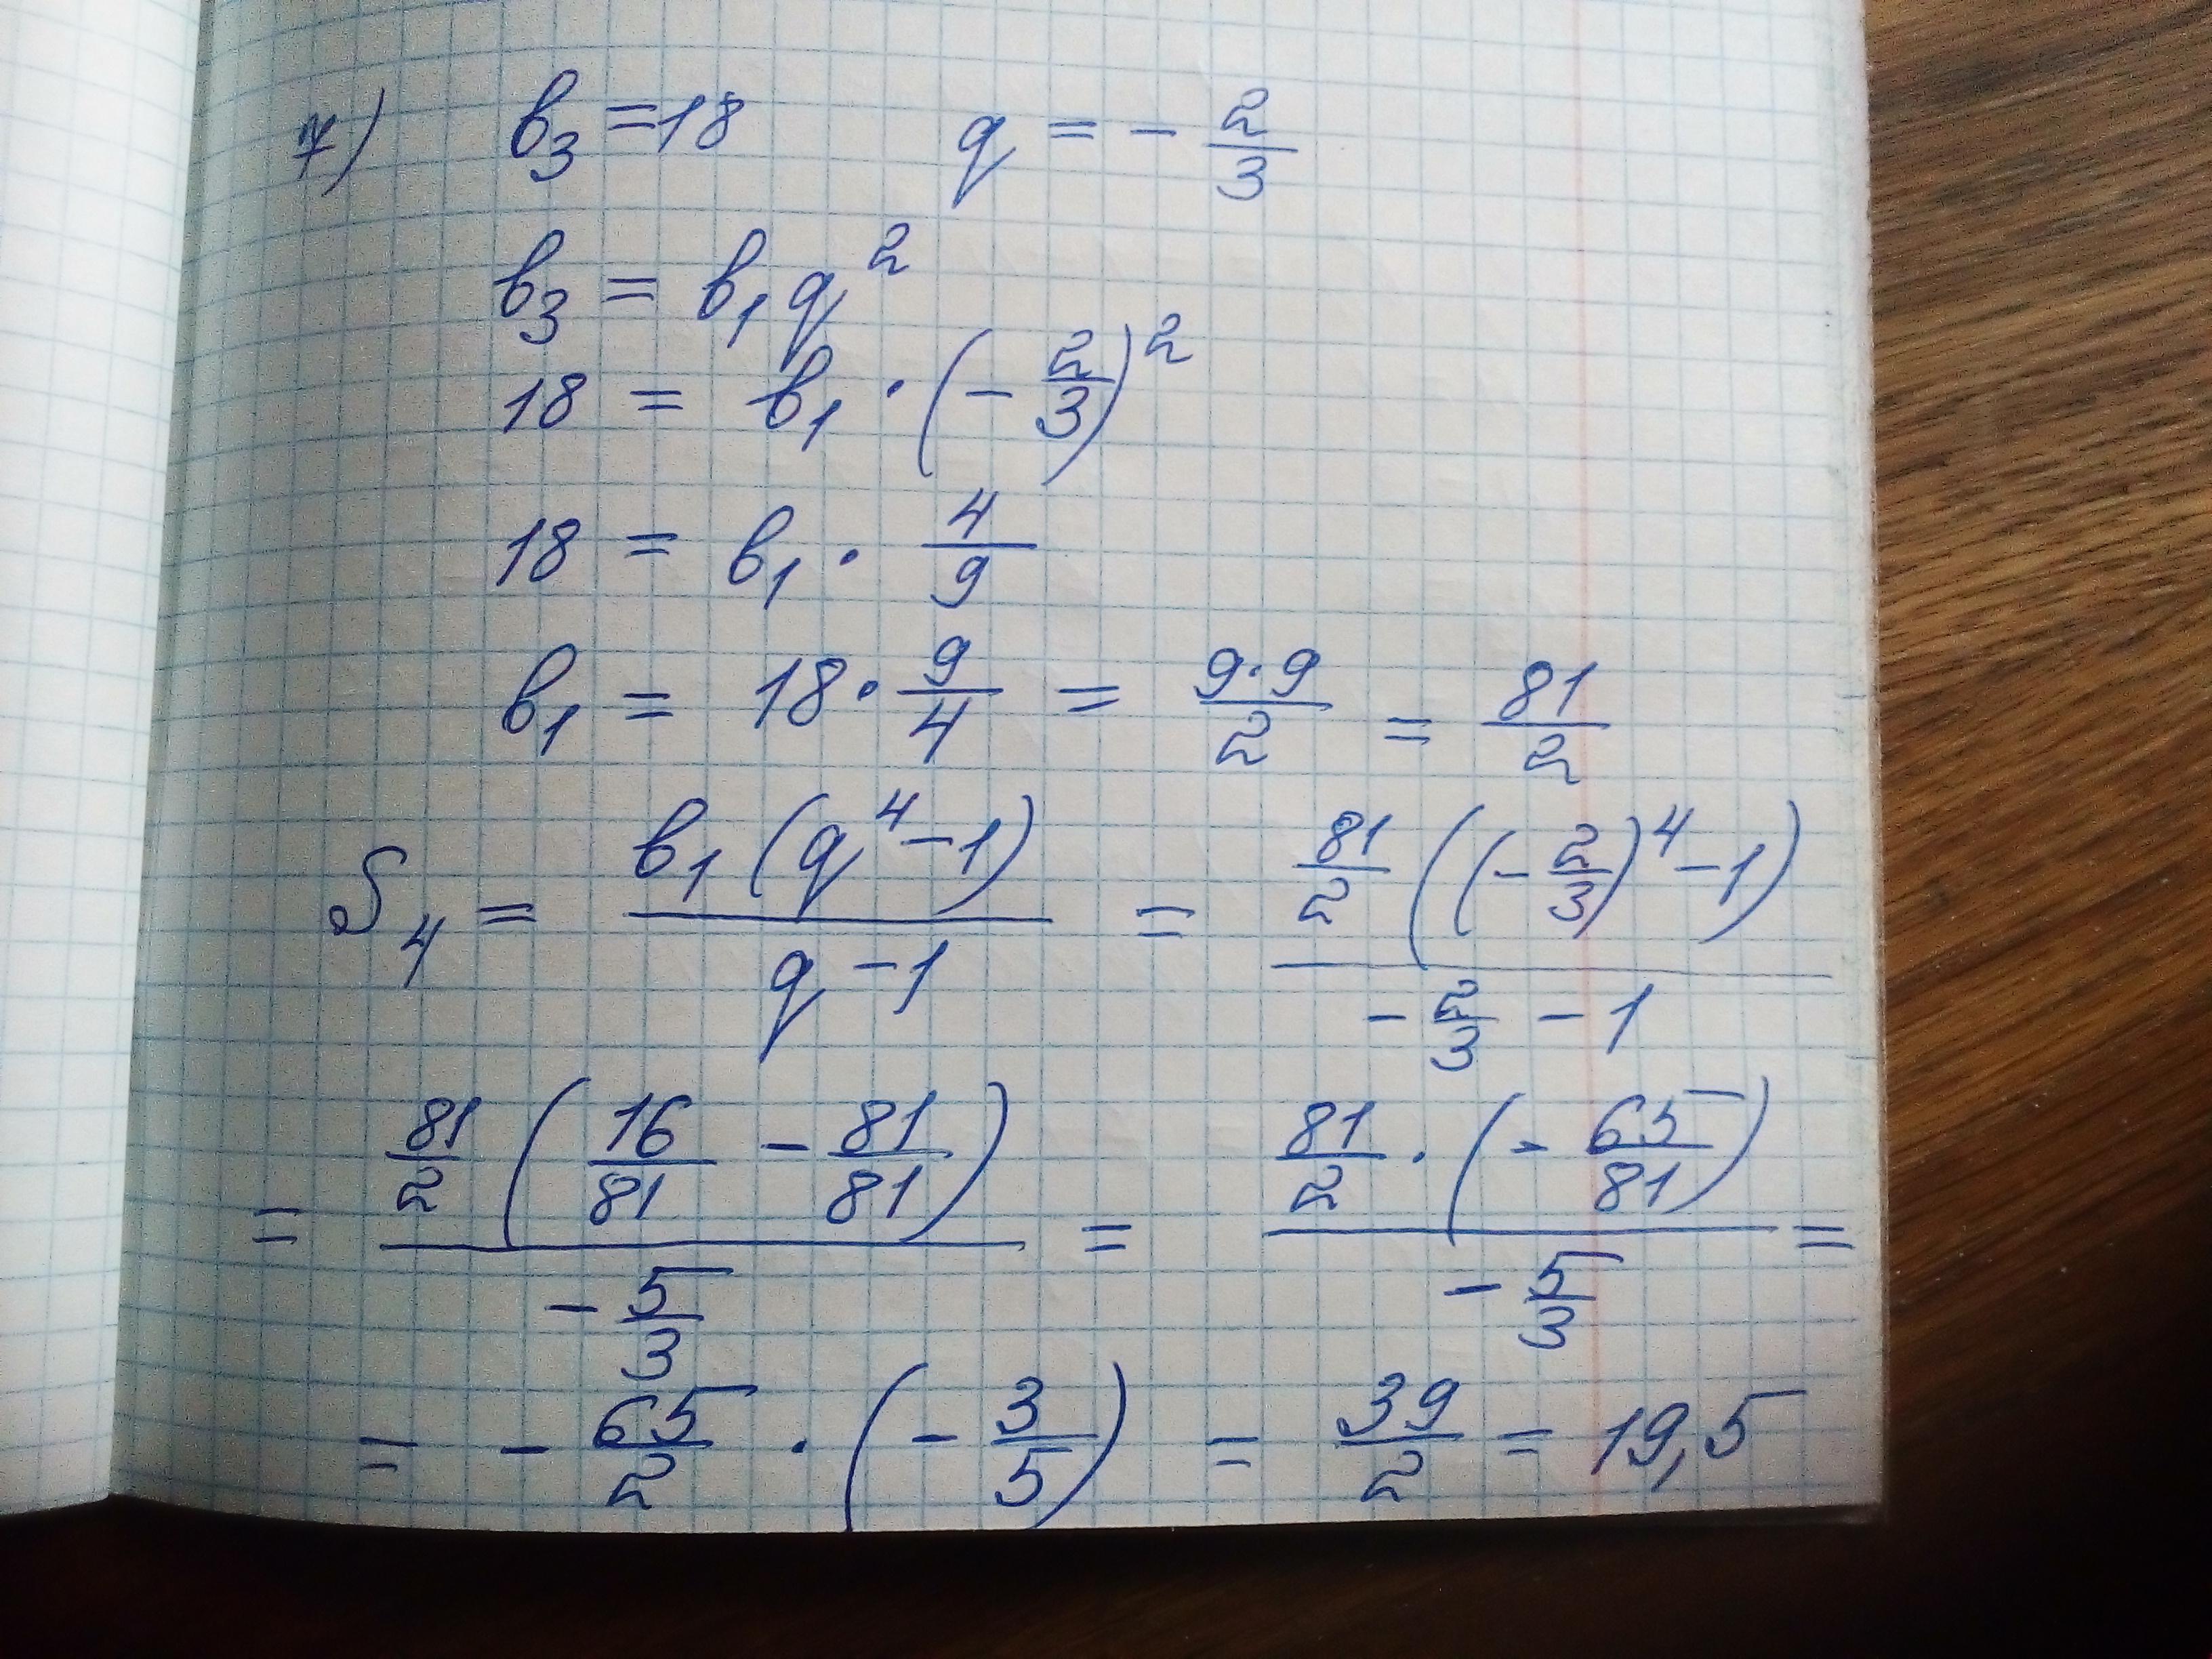 7) в₃ = 18 q = - 2/3
в₃ = в₁ q²
18 = в₁ · (- 2/3)²
18 = в₁ · 4/9
в₁ = 18 · 9/4 = 9·9/2 = 81/2
S₄ = в₁ (q⁴ - 1) / q - 1 = 81/2 ((- 2/3)⁴ - 1) / - 2/3 - 1
= 81/2 (16/81 - 81/81) / - 5/3 = 81/2 · (- 65/81) / - 5/3 =
= - 65/2 · (- 3/5) = 39/2 = 19,5